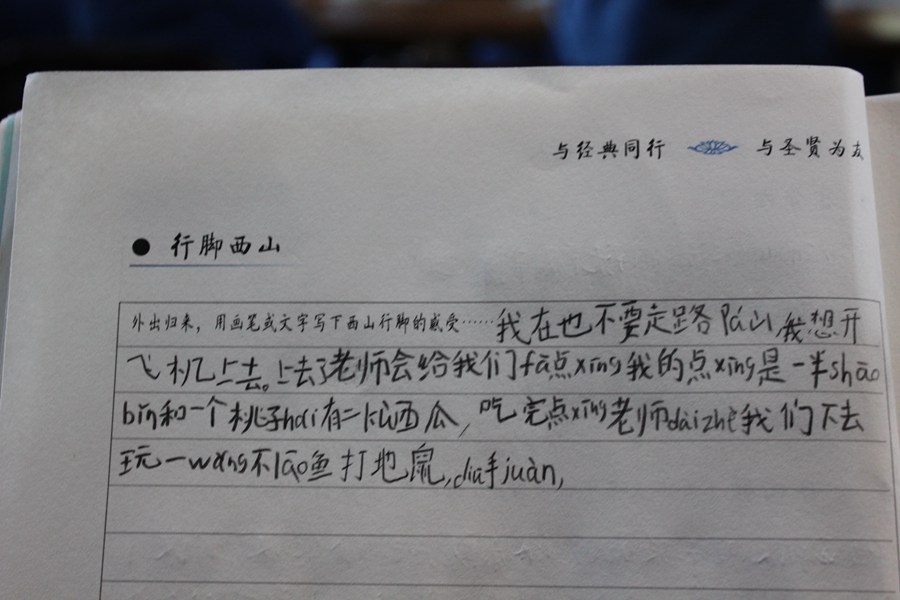 与经典同行 与圣贤为友
● 行脚西山
外出归来，用画笔或文字写下西山行脚的感受……我在也不要走路pá山我想开
飞机上去。上去了老师会给我们fā点xīng我的点xīng是一半shāo
bǐn和一个桃子hái有二片山西瓜，吃完点xīng老师dàizhe我们下去
玩一wǎng不lāo鱼打地鼠，diū手juàn，